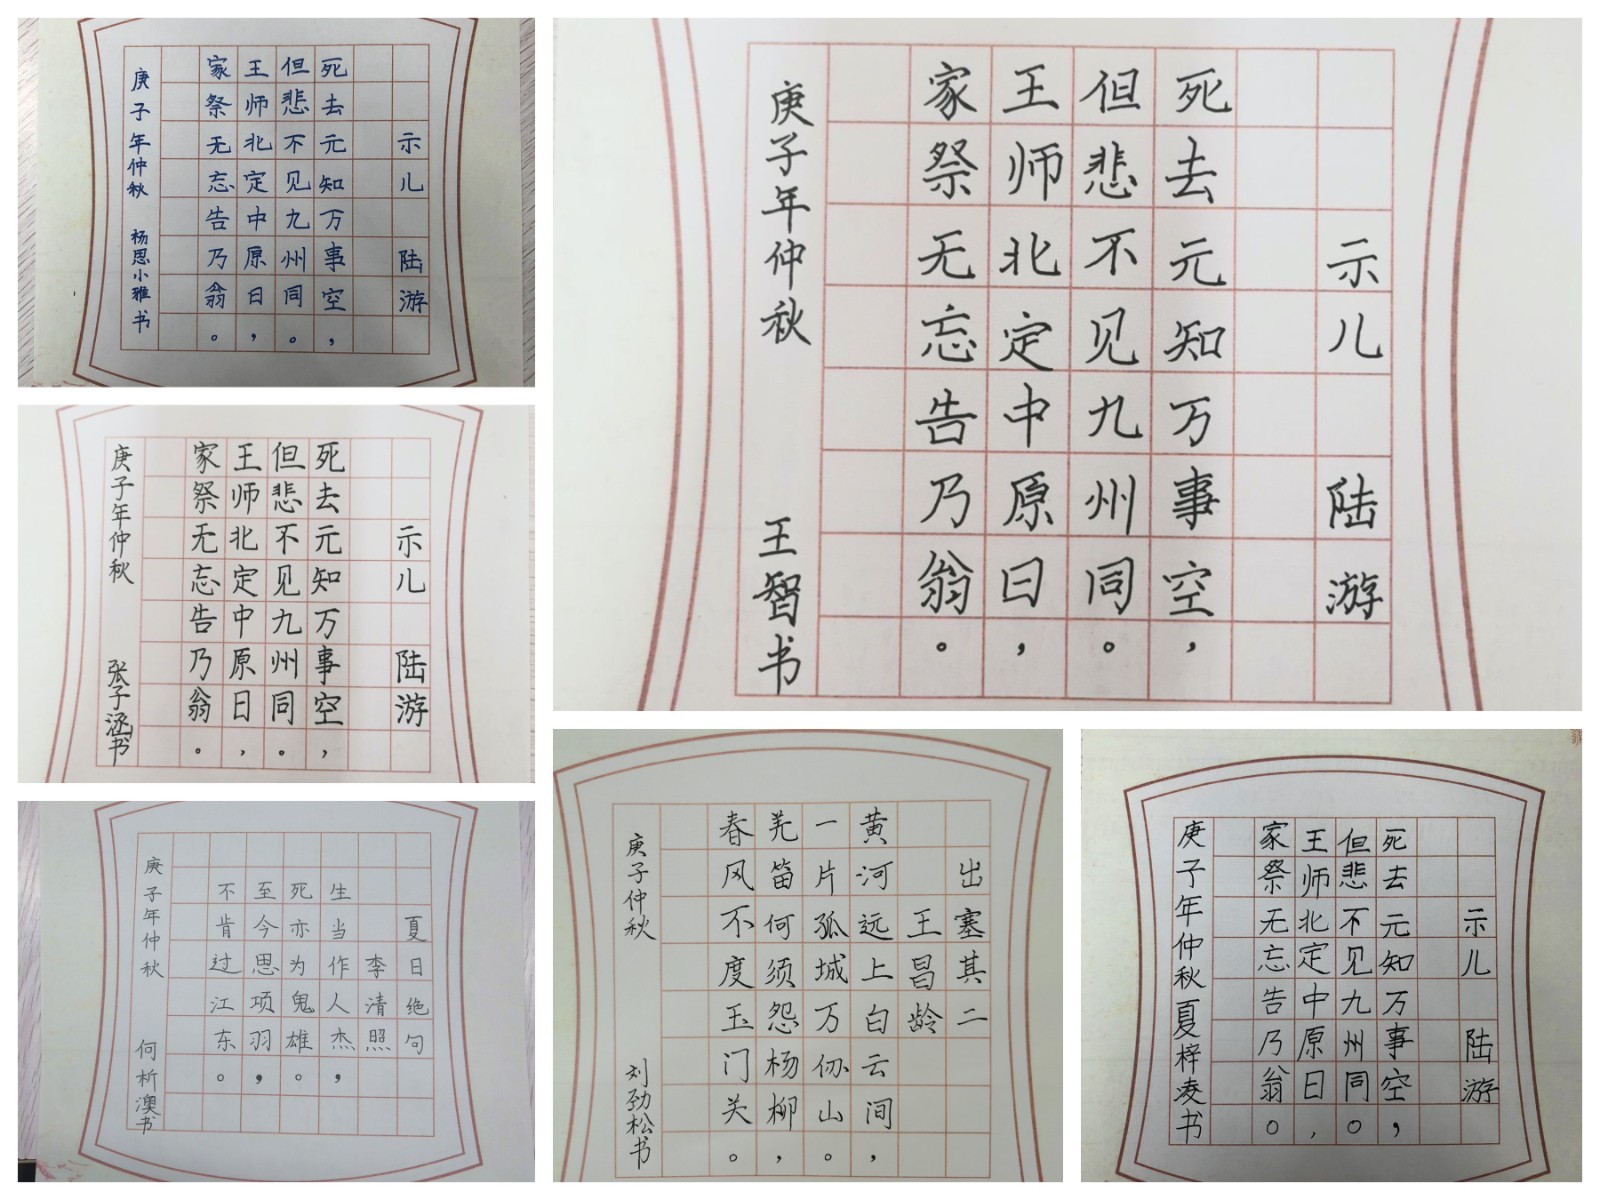 示儿 陆游
死去元知万事空，
但悲不见九州同。
王师北定中原日，
家祭无忘告乃翁。
庚子年仲秋 杨恩小雅书
示儿 陆游
死去元知万事空，
但悲不见九州同。
王师北定中原日，
家祭无忘告乃翁。
庚子年仲秋 王智书
示儿 陆游
死去元知万事空，
但悲不见九州同。
王师北定中原日，
家祭无忘告乃翁。
庚子年仲秋 张子涵书
夏日绝句
李清照
生当作人杰，
死亦为鬼雄。
至今思项羽，
不肯过江东。
庚子年仲秋 何析澳书
出塞其二
王昌龄
黄河远上白云间，
一片孤城万仞山。
羌笛何须怨杨柳，
春风不度玉门关。
庚子仲秋 刘劲松书
示儿 陆游
死去元知万事空，
但悲不见九州同。
王师北定中原日，
家祭无忘告乃翁。
庚子年仲秋夏梓凌书